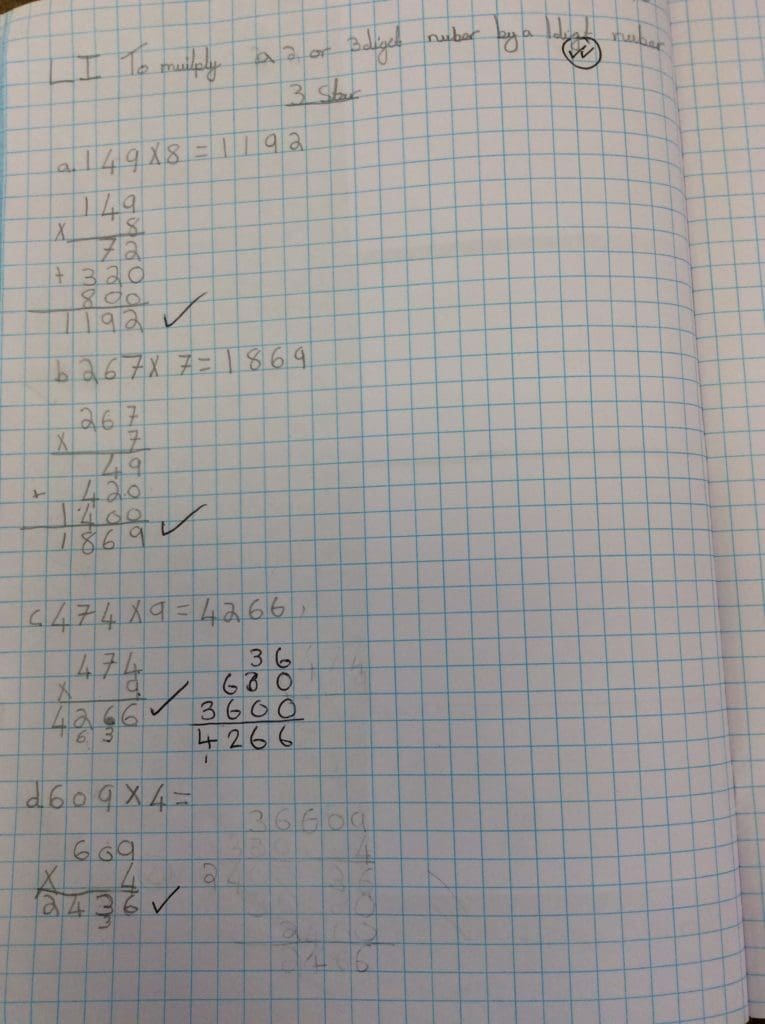 LI To muilply a 2 or 3 diget nuber by a 1 diget nuber
3 Star
a. 149 x 8 = 1192
149
x 8
72
+ 320
800
1192 ✓
b 267 x 7 = 1869
267
x 7
49
+ 420
1400
1869 ✓
c 474 x 9 = 4266
474
x 9
4266 ✓
6 3
36
630
3600
4266
1
d 609 x 4 =
609
x 4
2436 ✓
3